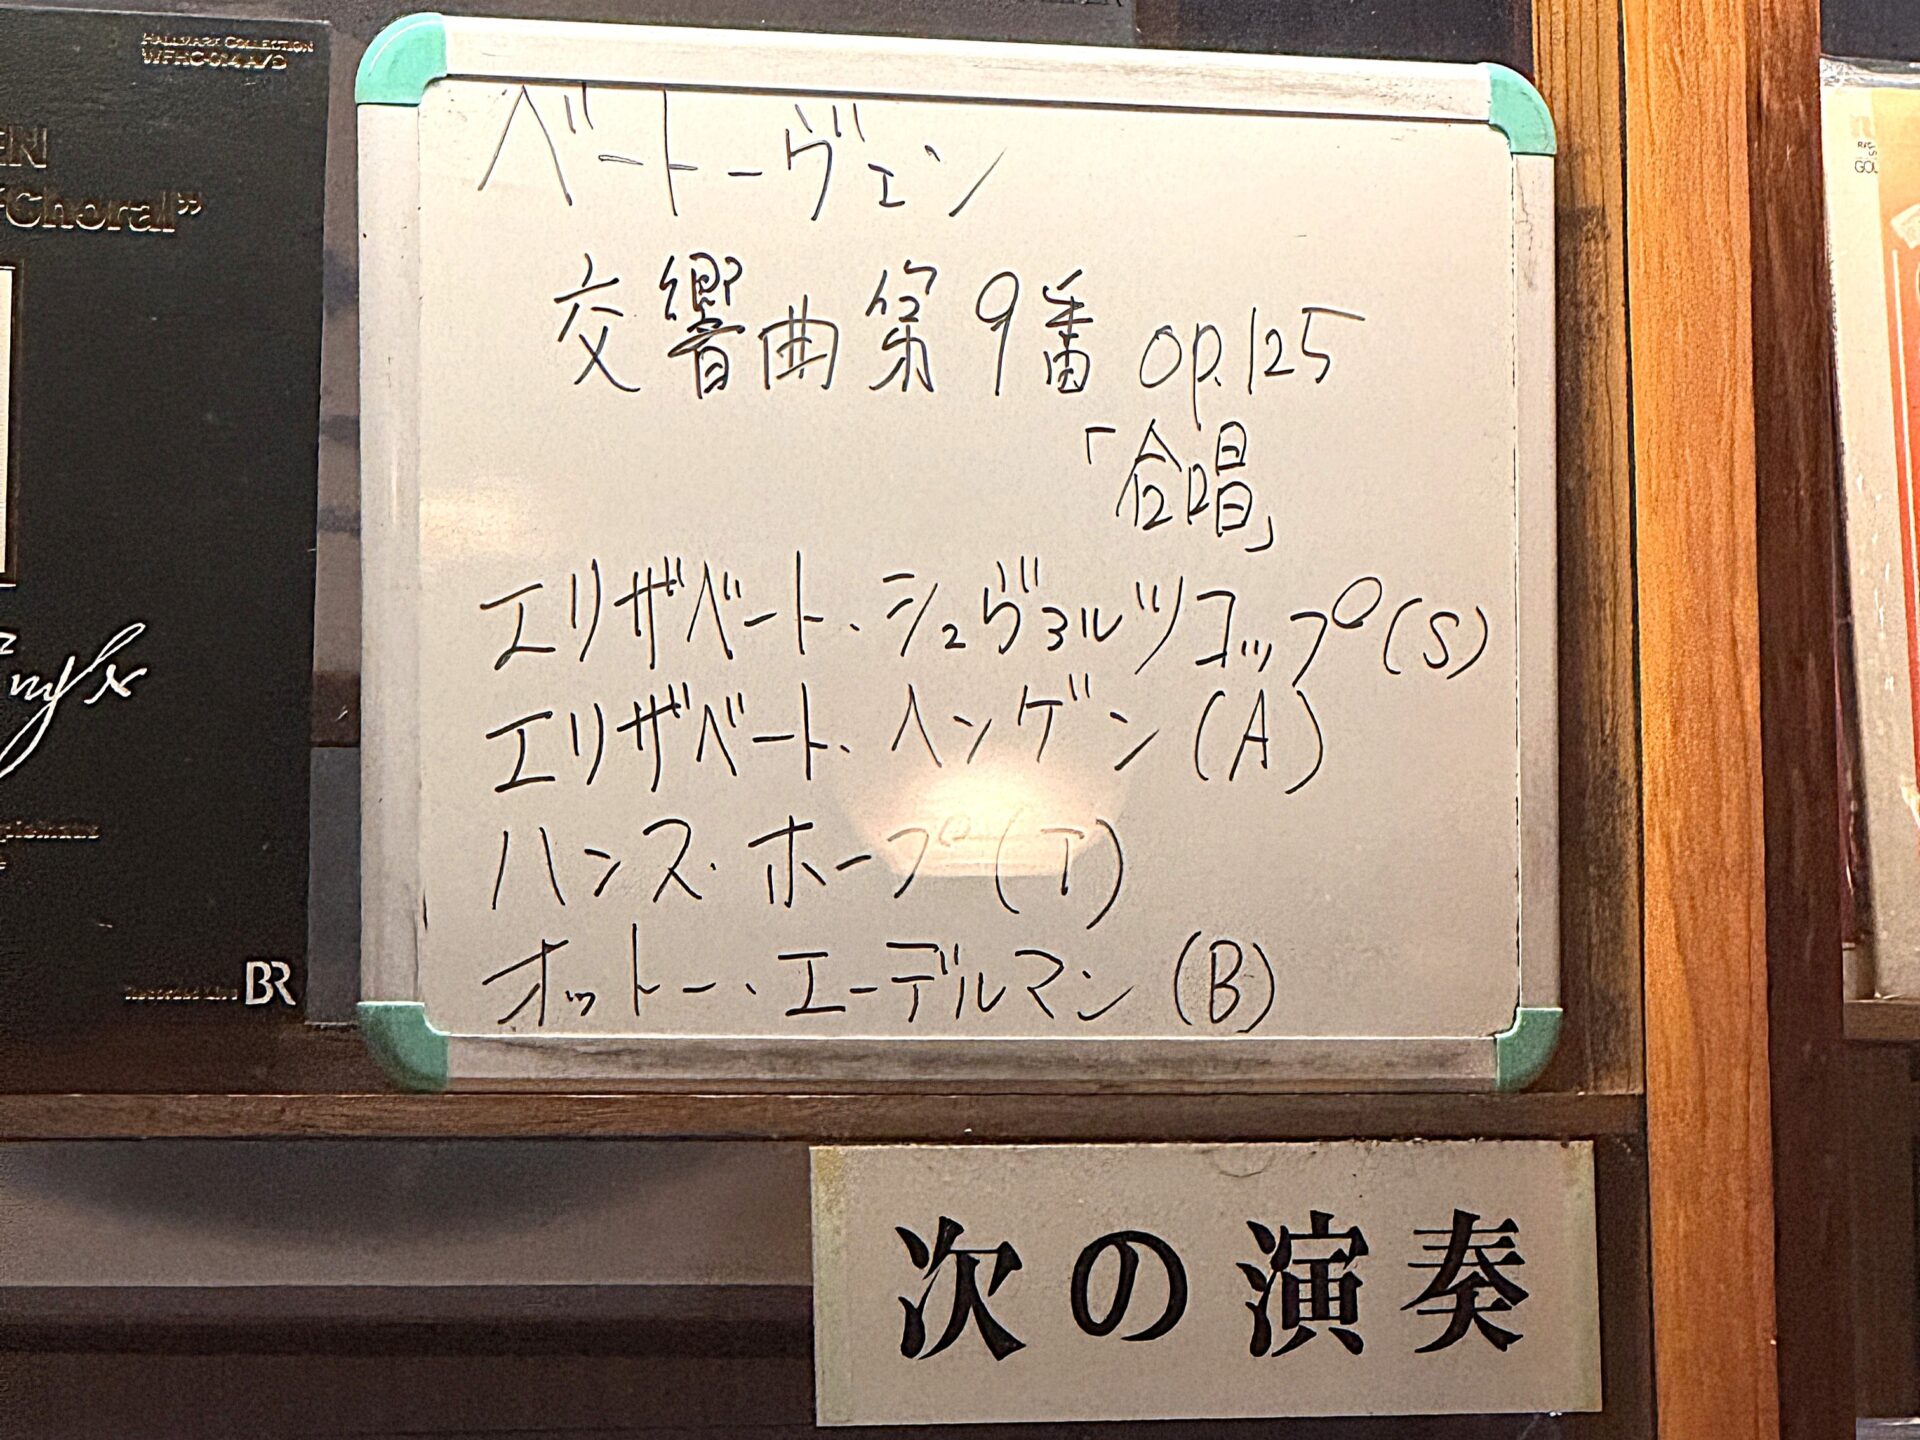 HALLMARK COLLECTION
WFHC-014 A/D
EN
"Choral"
BR
ベートーヴェン
交響曲第9番 op.125
「合唱」
エリザベート・シュヴァルツコップ(S)
エリザベート・ヘンゲン(A)
ハンス・ホープ(T)
オットー・エーデルマン(B)
次の演奏